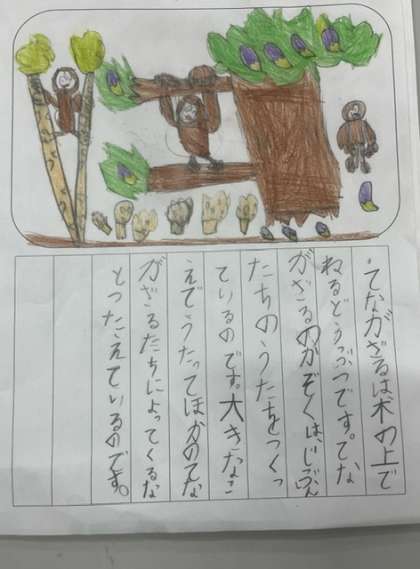 ・てながざるは木の上で
ねるどうぶつです。てな
がざるのかぞくは、じぶん
たちのうたをつくっ
ているのです。大きなこ
えでうたってほかのてな
がざるたちによってくるな
とつたえているのです。